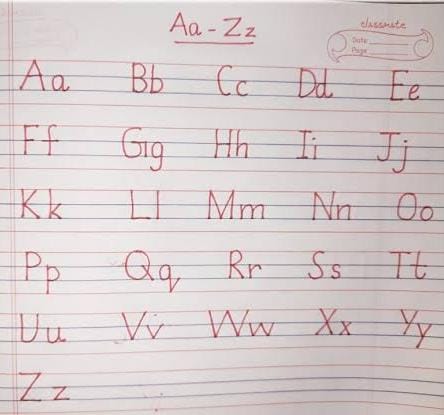 Aa - Zz
classmate
Date
Page
Aa Bb Cc Dd Ee
Ff Gg Hh Ii Jj
Kk Ll Mm Nn Oo
Pp Qq Rr Ss Tt
Uu Vv Ww Xx Yy
Zz